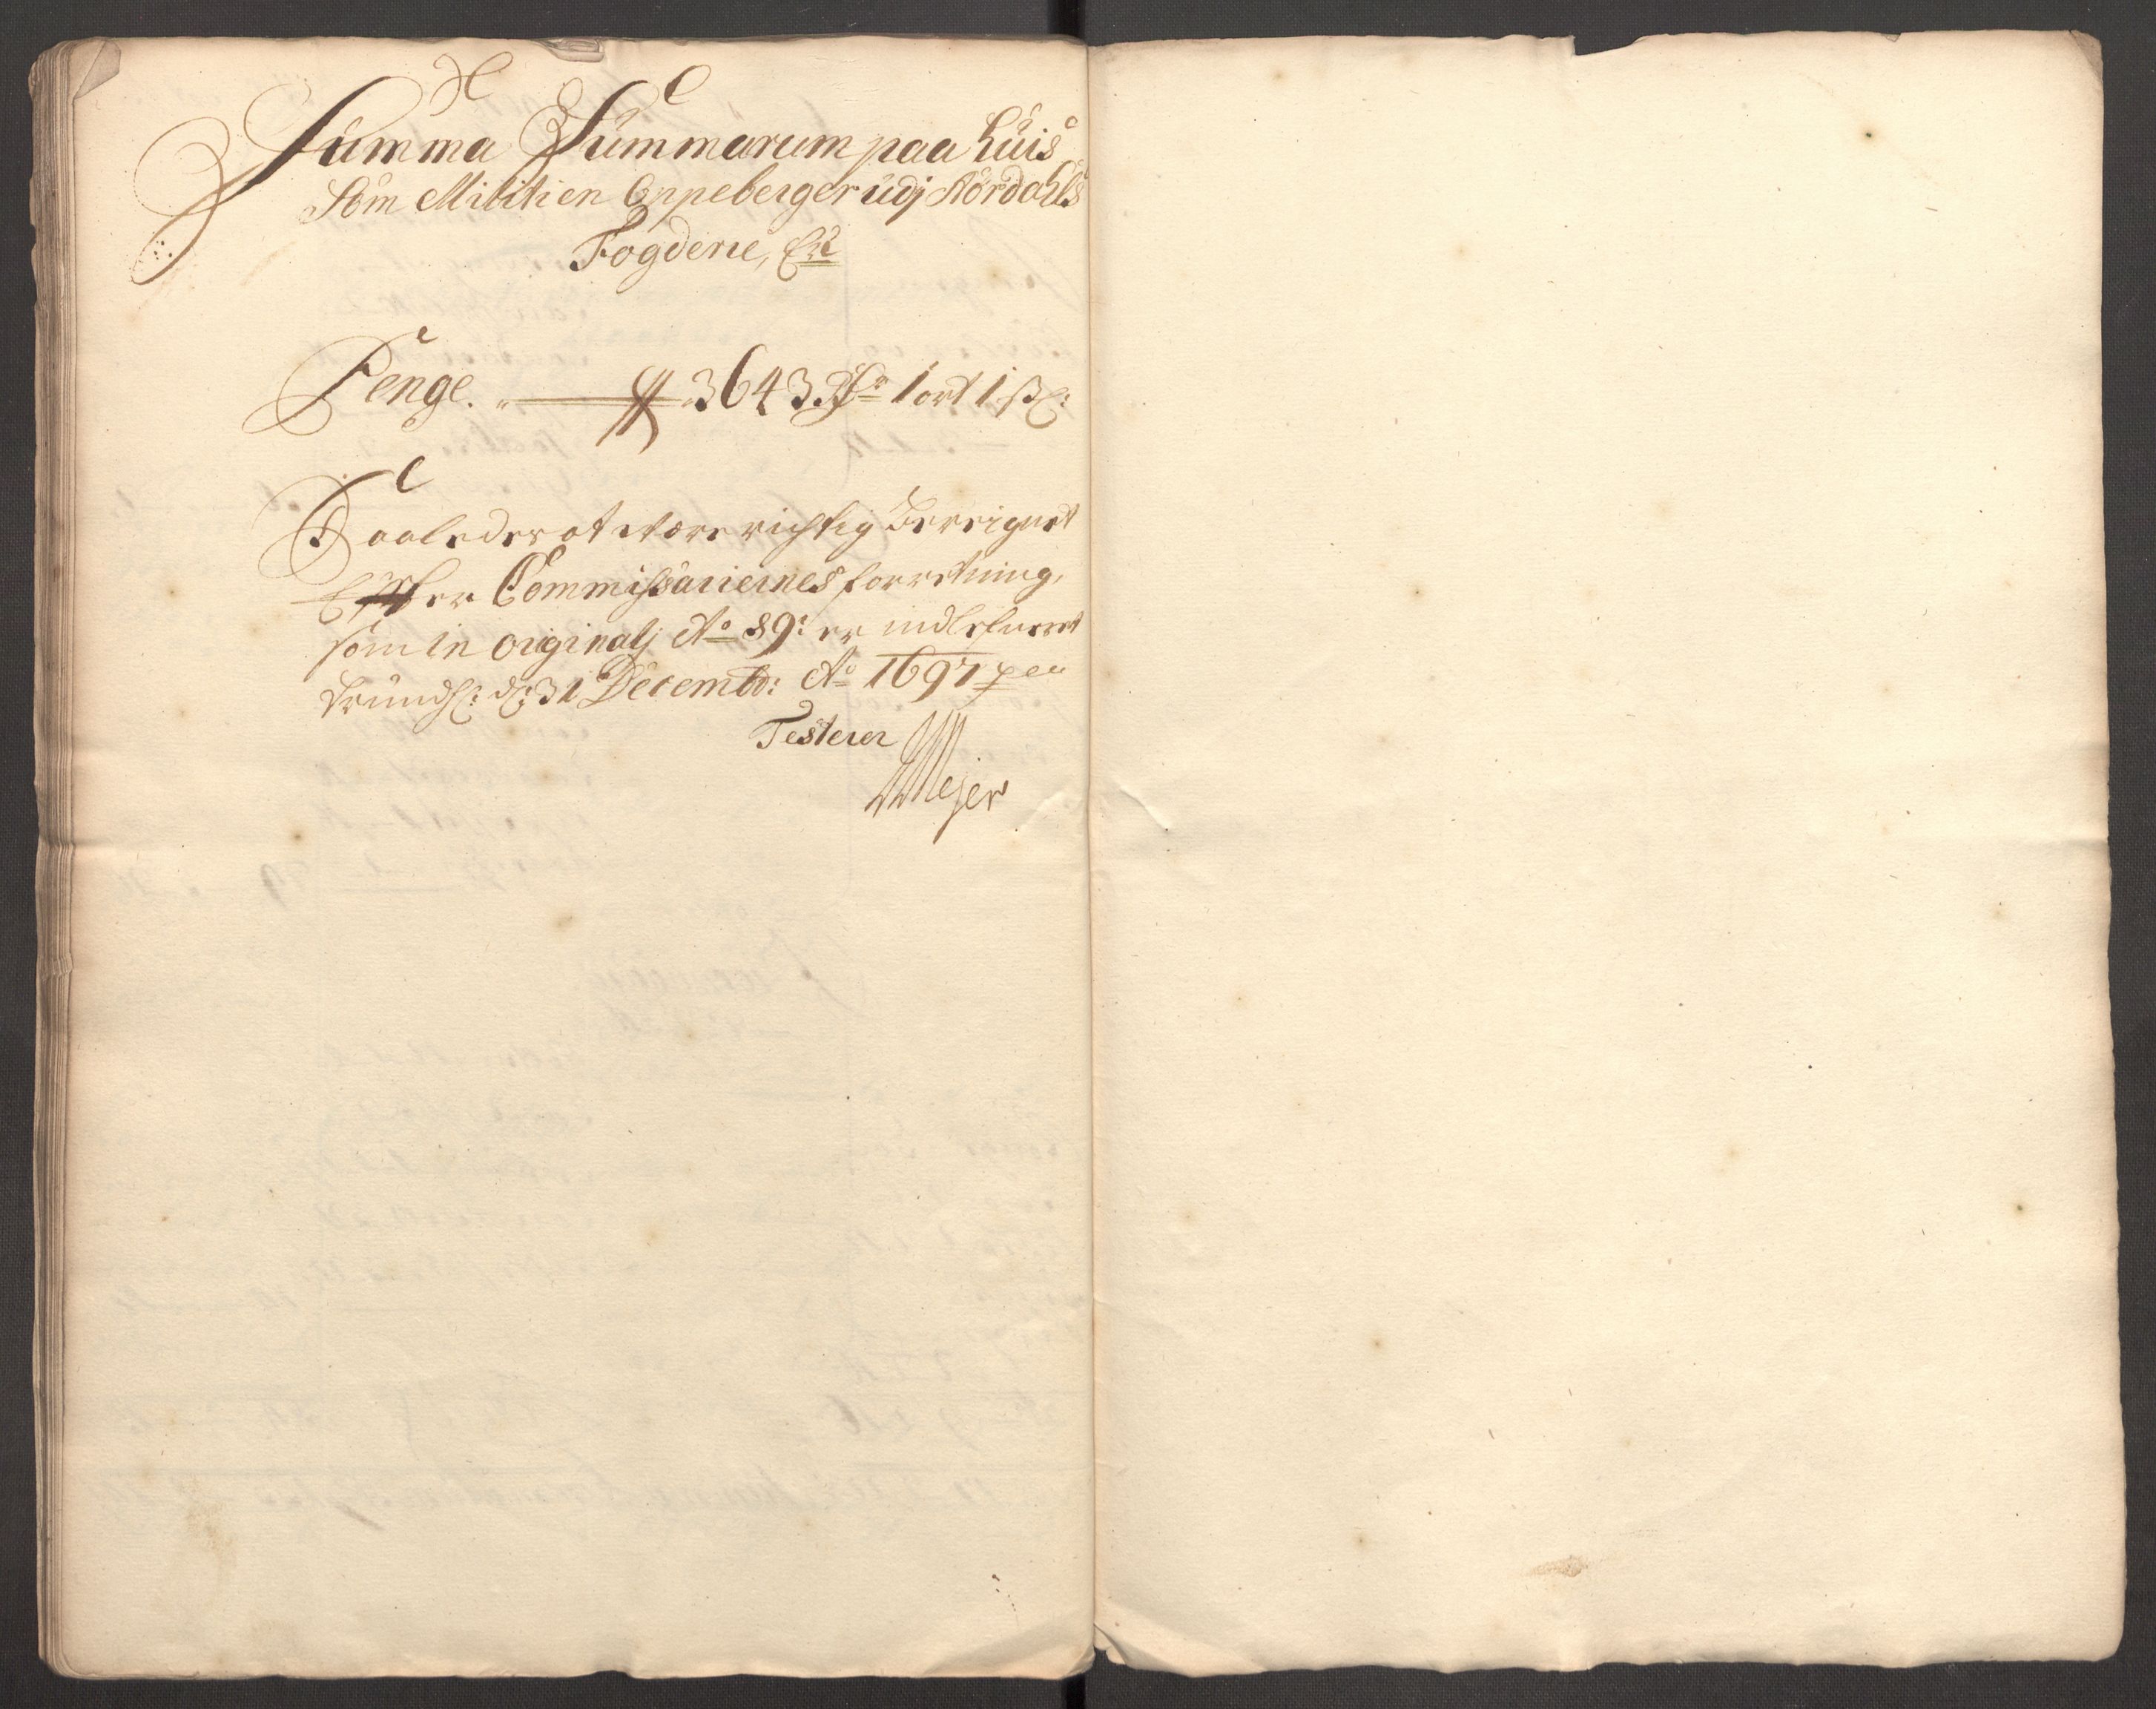 Summa Summarum paa huis
Som Militien Oppeberger udj Nordahls
Fogderie, Er
Penge. 3643 Rdr 1 ort 1 ß:
Saaledes at være richtig beregnet
Efter Commissariernes forretning,
som in originalj Ao 89: er indlefueret
Trundh: d: 31 Decembr: Ao 1697
Testerer
Mejer